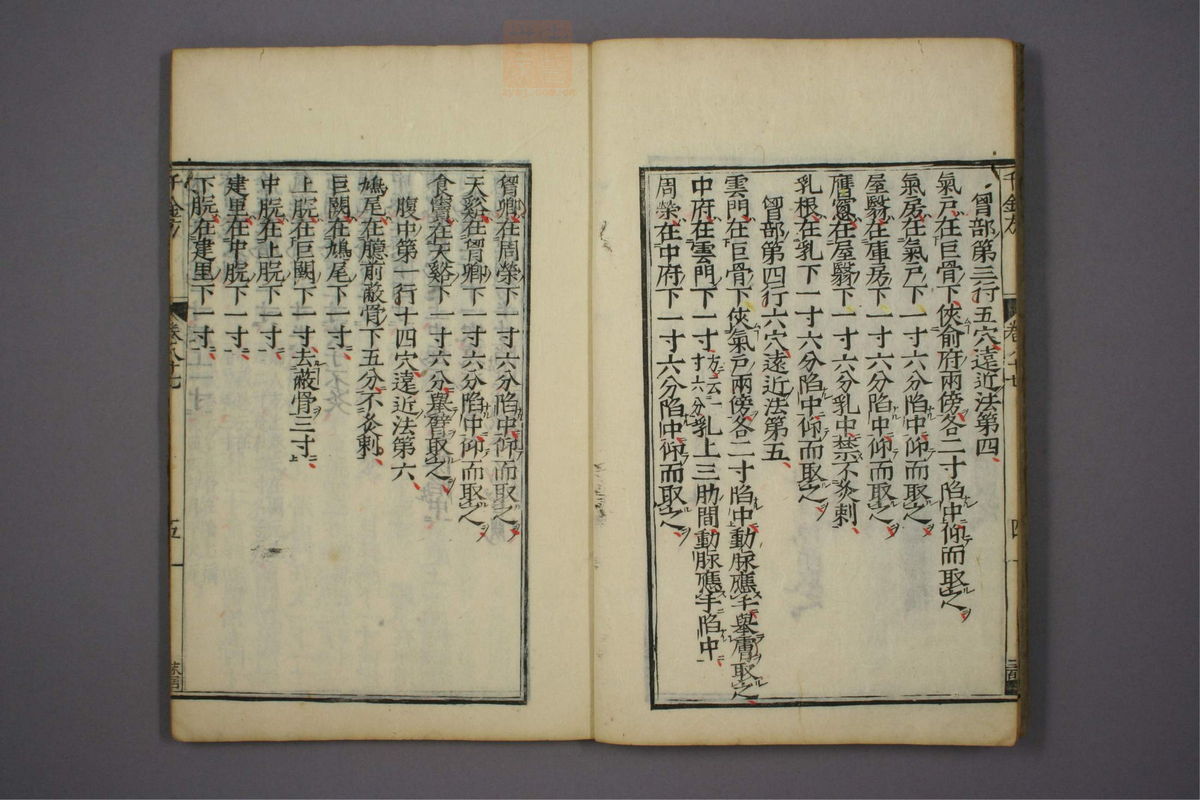 胷部第三行五穴遠近法第四
氣戶在巨骨下俠俞府兩傍各二寸陷中仰而取之
氣房在氣戶下一寸六分陷中仰而取之
屋翳在庫房下一寸六分陷中仰而取之
膺窗在屋翳下一寸六分乳中禁不灸刺
乳根在乳下一寸六分陷中仰而取之
胷部第四行六穴遠近法第五
雲門在巨骨下俠氣戶兩傍各二寸陷中動脉應手舉臂取之
中府在雲門下一寸一云一寸六分乳上三肋間動脉應手陷中
周榮在中府下一寸六分陷中仰而取之
胷鄉在周榮下一寸六分陷中仰而取之
天谿在胷鄉下一寸六分陷中仰而取之
食竇在天谿下一寸六分舉臂取之
腹中第一行十四穴遠近法第六
鳩尾在臆前蔽骨下五分不灸刺
巨闕在鳩尾下一寸
上脘在巨闕下一寸去蔽骨三寸
中脘在上脘下一寸
建里在中脘下一寸
下脘在建里下一寸
千金方
卷八十七
四
千金方
卷八十七
五